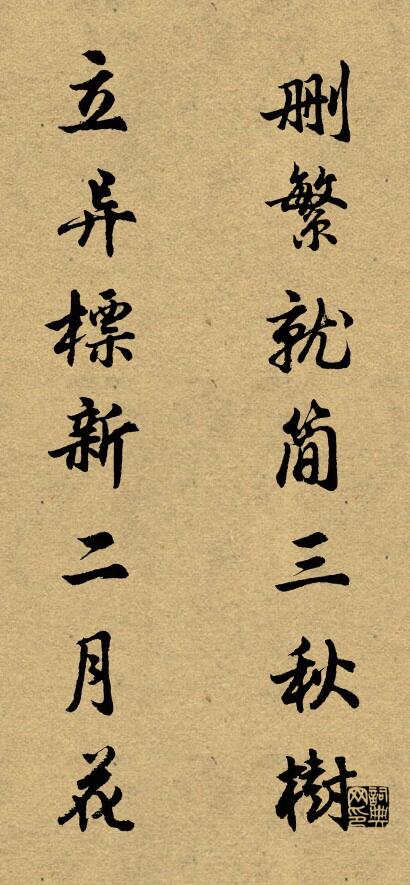 删繁就简三秋樹
立异標新二月花
詞典网印